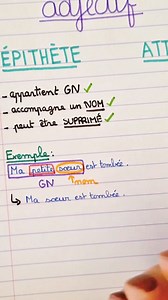 adjectif
ÉPITHÈTE ATT
- appartient GN ✓
- accompagne un NOM ✓
- peut être SUPPRIMÉ ✓
Exemple :
Ma petite sœur est tombée.
GN nom
↳ Ma sœur est tombée.